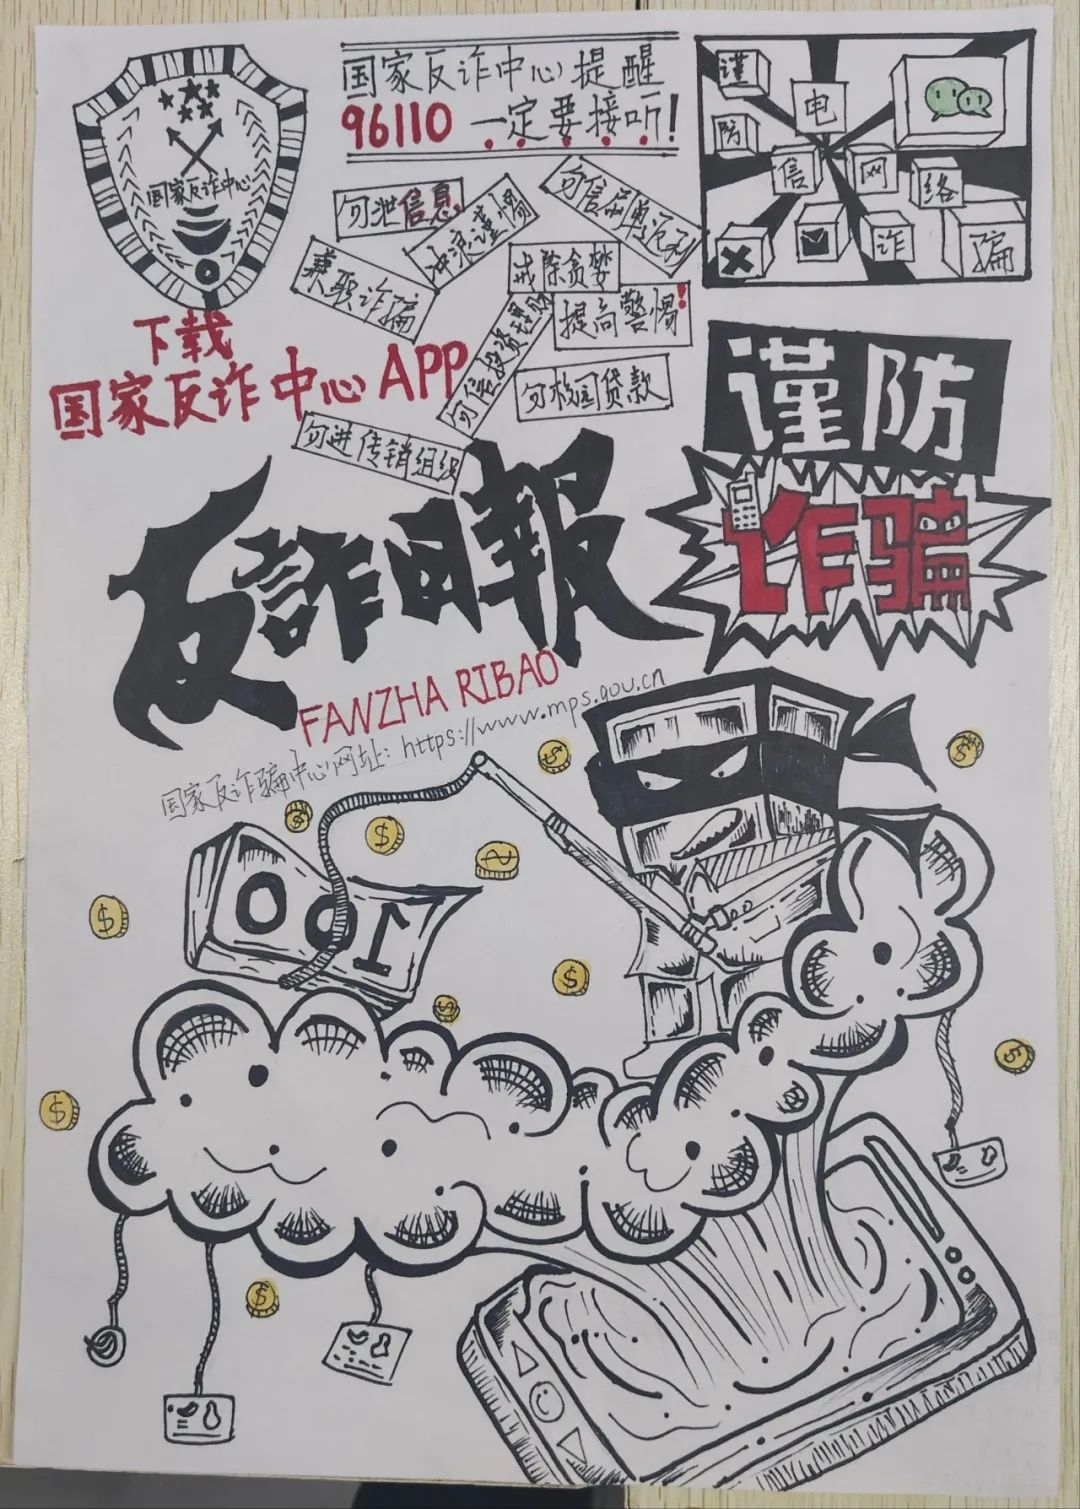 国家反诈中心
国家反诈中心提醒
96110 一定要接听!
谨
防
电
信
网
络
诈
骗
勿泄信息
冲浪谨惕
勿信刷单返利
兼职诈骗
戒除贪婪
提高警惕!
勿信投资理财
勿校园贷款
勿进传销组织
下载
国家反诈中心APP
谨防
诈骗
反詐日報
FANZHA RIBAO
国家反诈骗中心网址: https://www.mps.gov.cn
100
$
$
$
$
$
$
$
$
$